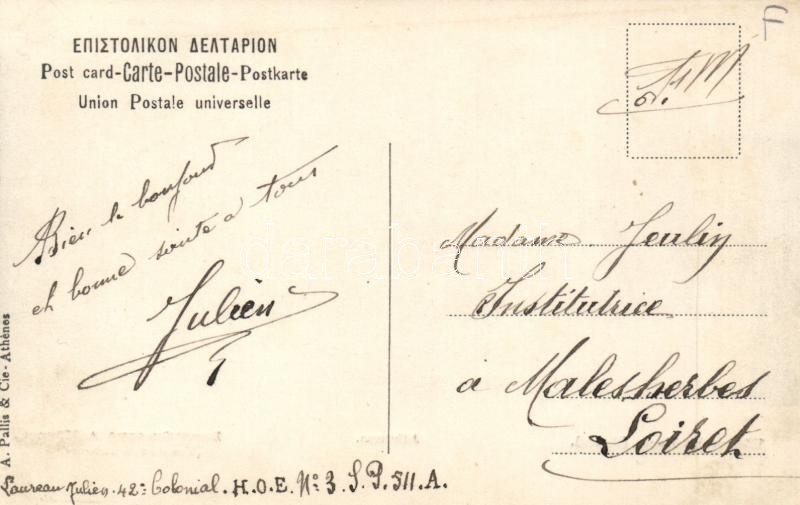 F
ΕΠΙΣΤΟΛΙΚΟΝ ΔΕΛΤΑΡΙΟΝ
Post card-Carte-Postale-Postkarte
Union Postale universelle
F M
Bien le bonjour
et bonne sante a tous
Julien
Madame Jeulin
Institutrice
à Malesherbes
Loiret
A. Pallis & Cie - Athènes
Laureau Julien. 42e Colonial. H.O.E. No 3. S.P. 511. A.